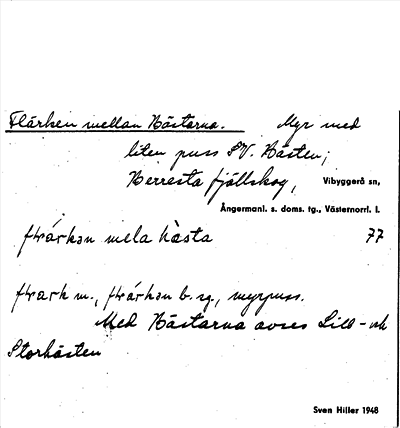 Flärken mellan Hästarna. Myr med
liten puss SV. Hästen;
Herresta fjällskog, Vibyggerå sn,
Ångermanl. s. doms. tg., Västernorrl. l.
mela hàsta 77
m., b. sg., myrpuss.
Med Hästarna avses Lill- och
Storhästen
Sven Hiller 1948